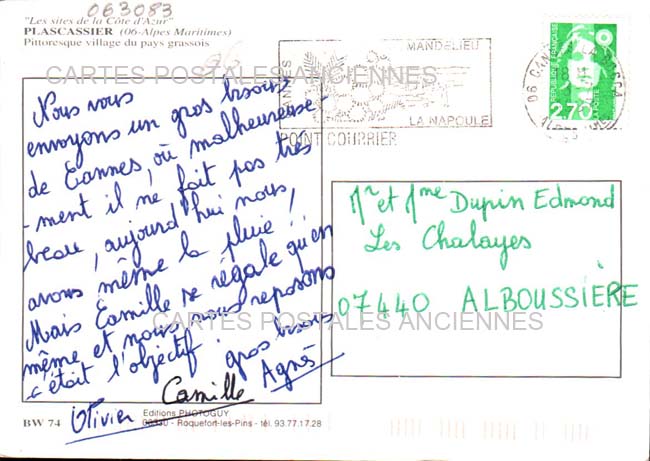 063083
"Les sites de la Côte d'Azur"
PLASCASSIER (06-Alpes Maritimes)
Pittoresque village du pays grassois
96
CARTES POSTALES ANCIENNES
CANNES
MANDELIEU
LA NAPOULE
POINT COURRIER
06 CANNES LA BOCCA
REPUBLIQUE FRANÇAISE
2,70
LA POSTE
Nous vous
envoyons un gros bisous
de Cannes, où malheureuse-
-ment il ne fait pas très
beau, aujourd'hui nous
avons même la pluie!
Mais Camille se régale qd
même et nous, nous reposons
c'était l'objectif. gros bisous
Olivier Camille Agnès
Mr et Mme Dupin Edmond
Les Chalayes
07440 ALBOUSSIÈRE
CARTES POSTALES ANCIENNES
BW 74
Editions PHOTOGUY
06330 - Roquefort-les-Pins - tél. 93.77.17.28